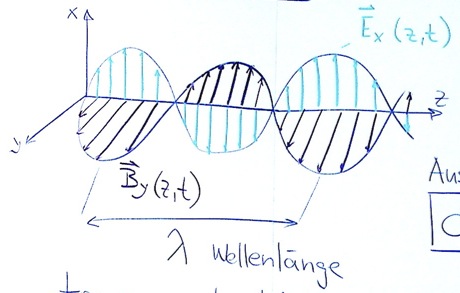 x
E⃗x (z,t)
z
y
B⃗y(z,t)
λ Wellenlänge